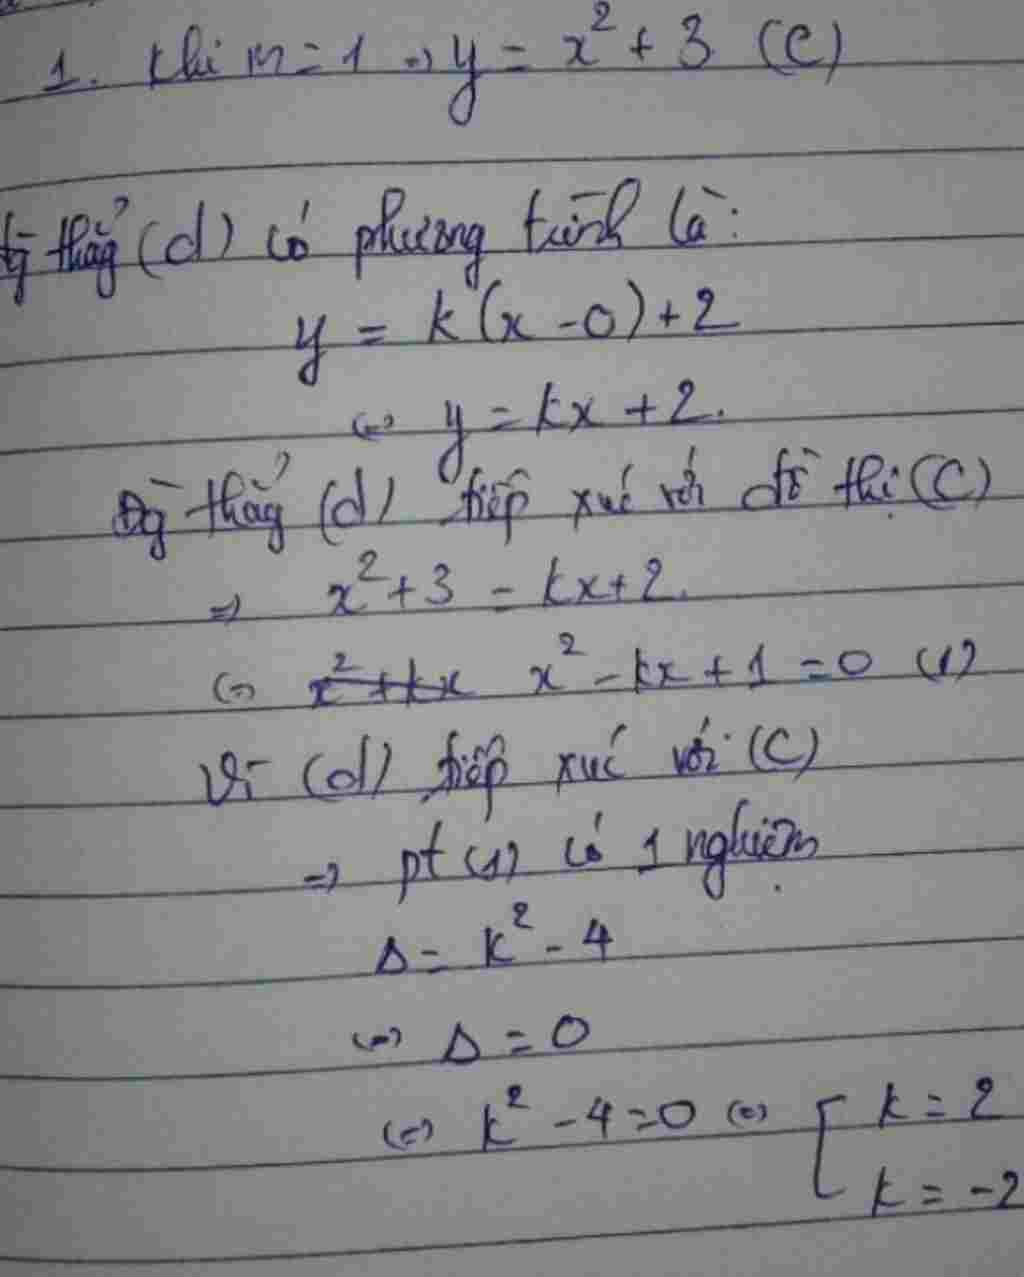 1. Khi m = 1 => y = x² + 3 (C)
Đg thẳg (d) có phương trình là:
y = k(x - 0) + 2
<=> y = kx + 2.
Đg thẳg (d) tiếp xúc với đồ thị (C)
=> x² + 3 = kx + 2.
<=> x² - kx + 1 = 0 (1)
Vì (d) tiếp xúc với (C)
=> pt (1) có 1 nghiệm
Δ = k² - 4
<=> Δ = 0
<=> k² - 4 = 0 <=> [ k = 2
k = -2